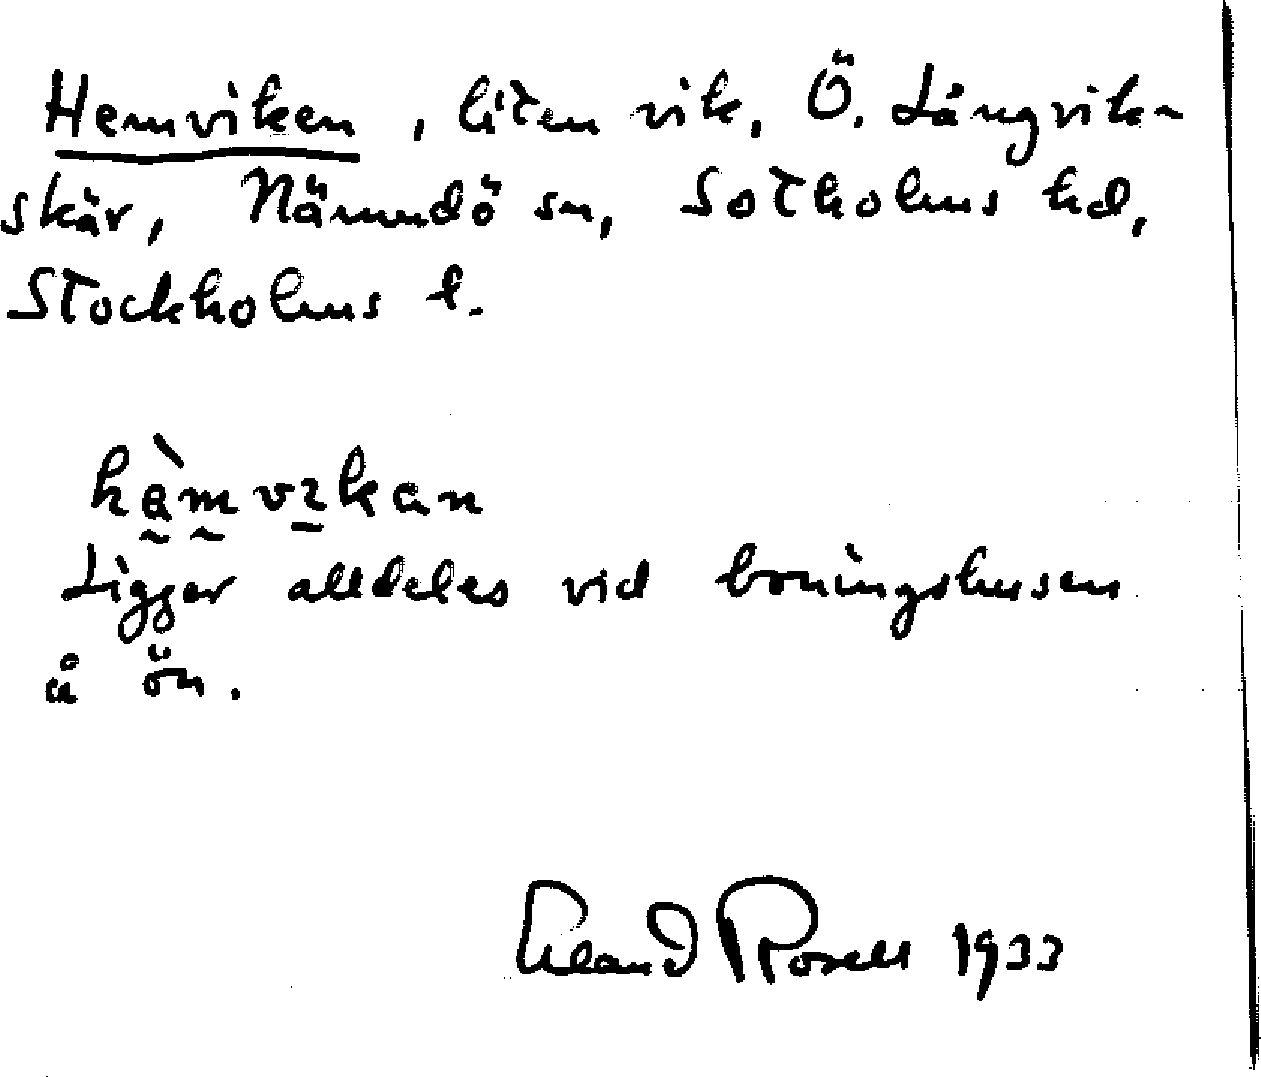 Hemviken, liten vik, Ö. Långvik-
skär, Nämndö sn, Sotholms hd,
Stockholms l.
hèmvikan
Ligger alldeles vid boningshusen
å ön.
Erland Rosell 1933